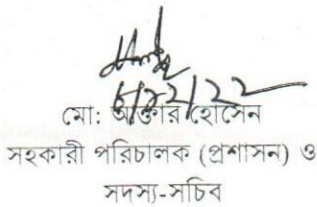 মো: আক্তার হোসেন
সহকারী পরিচালক (প্রশাসন) ও
সদস্য-সচিব